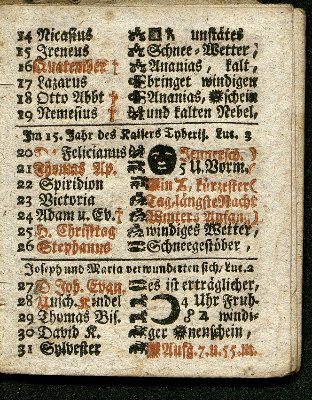 14 Nicasius unstätes
15 Ireneus Schnee-Wetter,
16 Quatember † Ananias, kalt,
17 Lazarus bringet windigen
18 Otto Abbt † Ananias, schein
19 Nemesius und kalten Nebel,
Im 15. Jahr des Kaisers Tyberij. Luc. 3
20 Felicianus
21 Thomas Ap. 5 U. Vorm.
22 Spiridion kürzester
23 Victoria Tag, längste Nacht
24 Adam u. Ev. † Winters Anfan.
25 H. Christtag windiges Wetter,
26 Stephanus Schneegestöber,
Joseph und Maria verwunderten sich, Luc. 2
27 Joh. Evan. es ist erträglicher,
28 Unsch. Kindel 4 Uhr Früh-
29 Thomas Bis. windi-
30 David K. ger nenschein,
31 Sylvester Aufg. 7. u. 55. m.